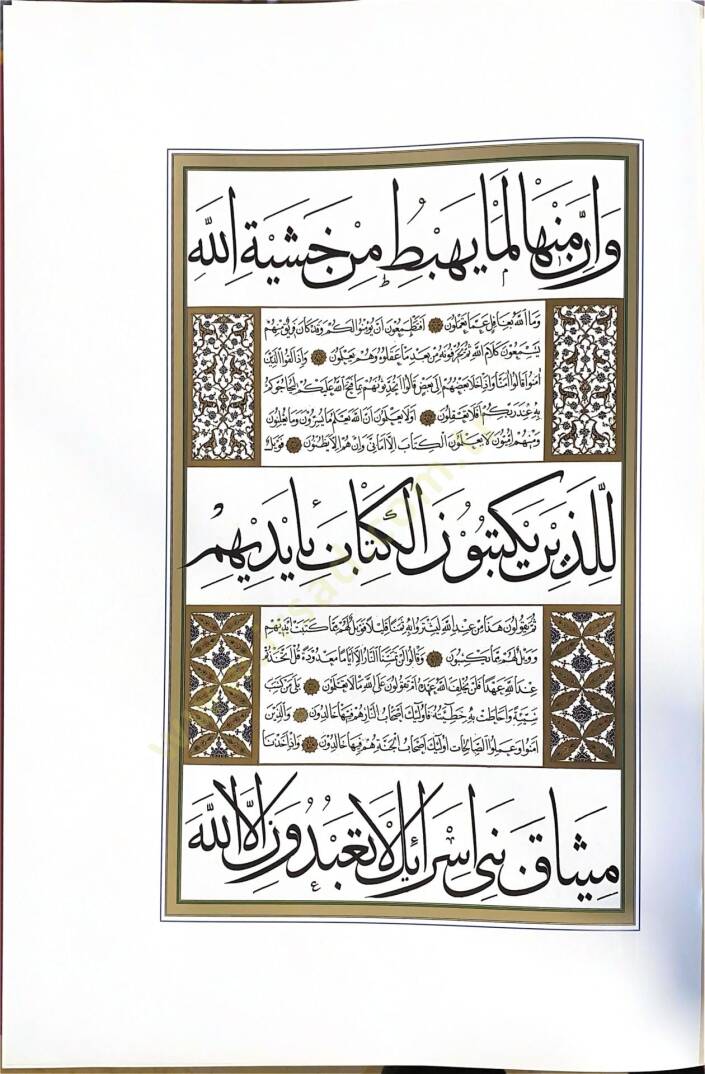 وَاِنَّ مِنْهَا لَمَا يَهْبِطُ مِنْ خَشْيَةِ اللّٰهِ
وَمَا اللّٰهُ بِغَافِلٍ عَمَّا تَعْمَلُونَ اَفَتَطْمَعُونَ اَنْ يُؤْمِنُوا لَكُمْ وَقَدْ كَانَ فَرِيقٌ مِنْهُمْ
يَسْمَعُونَ كَلَامَ اللّٰهِ ثُمَّ يُحَرِّفُونَهُ مِنْ بَعْدِ مَا عَقَلُوهُ وَهُمْ يَعْلَمُونَ وَاِذَا لَقُوا الَّذِينَ
اٰمَنُوا قَالُوا اٰمَنَّا وَاِذَا خَلَا بَعْضُهُمْ اِلٰى بَعْضٍ قَالُوا اَتُحَدِّثُونَهُمْ بِمَا فَتَحَ اللّٰهُ عَلَيْكُمْ لِيُحَاجُّوكُمْ
بِهِ عِنْدَ رَبِّكُمْ اَفَلَا تَعْقِلُونَ اَوَلَا يَعْلَمُونَ اَنَّ اللّٰهَ يَعْلَمُ مَا يُسِرُّونَ وَمَا يُعْلِنُونَ
وَمِنْهُمْ اُمِّيُّونَ لَا يَعْلَمُونَ الْكِتَابَ اِلَّا اَمَانِيَّ وَاِنْ هُمْ اِلَّا يَظُنُّونَ فَوَيْلٌ
لِلَّذِينَ يَكْتُبُونَ الْكِتَابَ بِاَيْدِيهِمْ
ثُمَّ يَقُولُونَ هٰذَا مِنْ عِنْدِ اللّٰهِ لِيَشْتَرُوا بِهِ ثَمَنًا قَلِيلًا فَوَيْلٌ لَهُمْ مِمَّا كَتَبَتْ اَيْدِيهِمْ
وَوَيْلٌ لَهُمْ مِمَّا يَكْسِبُونَ وَقَالُوا لَنْ تَمَسَّنَا النَّارُ اِلَّا اَيَّامًا مَعْدُودَةً قُلْ اَتَّخَذْتُمْ
عِنْدَ اللّٰهِ عَهْدًا فَلَنْ يُخْلِفَ اللّٰهُ عَهْدَهُ اَمْ تَقُولُونَ عَلَى اللّٰهِ مَا لَا تَعْلَمُونَ بَلٰى مَنْ كَسَبَ
سَيِّئَةً وَاَحَاطَتْ بِهِ خَطِيئَتُهُ فَاُولٰئِكَ اَصْحَابُ النَّارِ هُمْ فِيهَا خَالِدُونَ وَالَّذِينَ
اٰمَنُوا وَعَمِلُوا الصَّالِحَاتِ اُولٰئِكَ اَصْحَابُ الْجَنَّةِ هُمْ فِيهَا خَالِدُونَ وَاِذْ اَخَذْنَا
مِيثَاقَ بَنِي اِسْرَائِيلَ لَا تَعْبُدُونَ اِلَّا اللّٰهَ